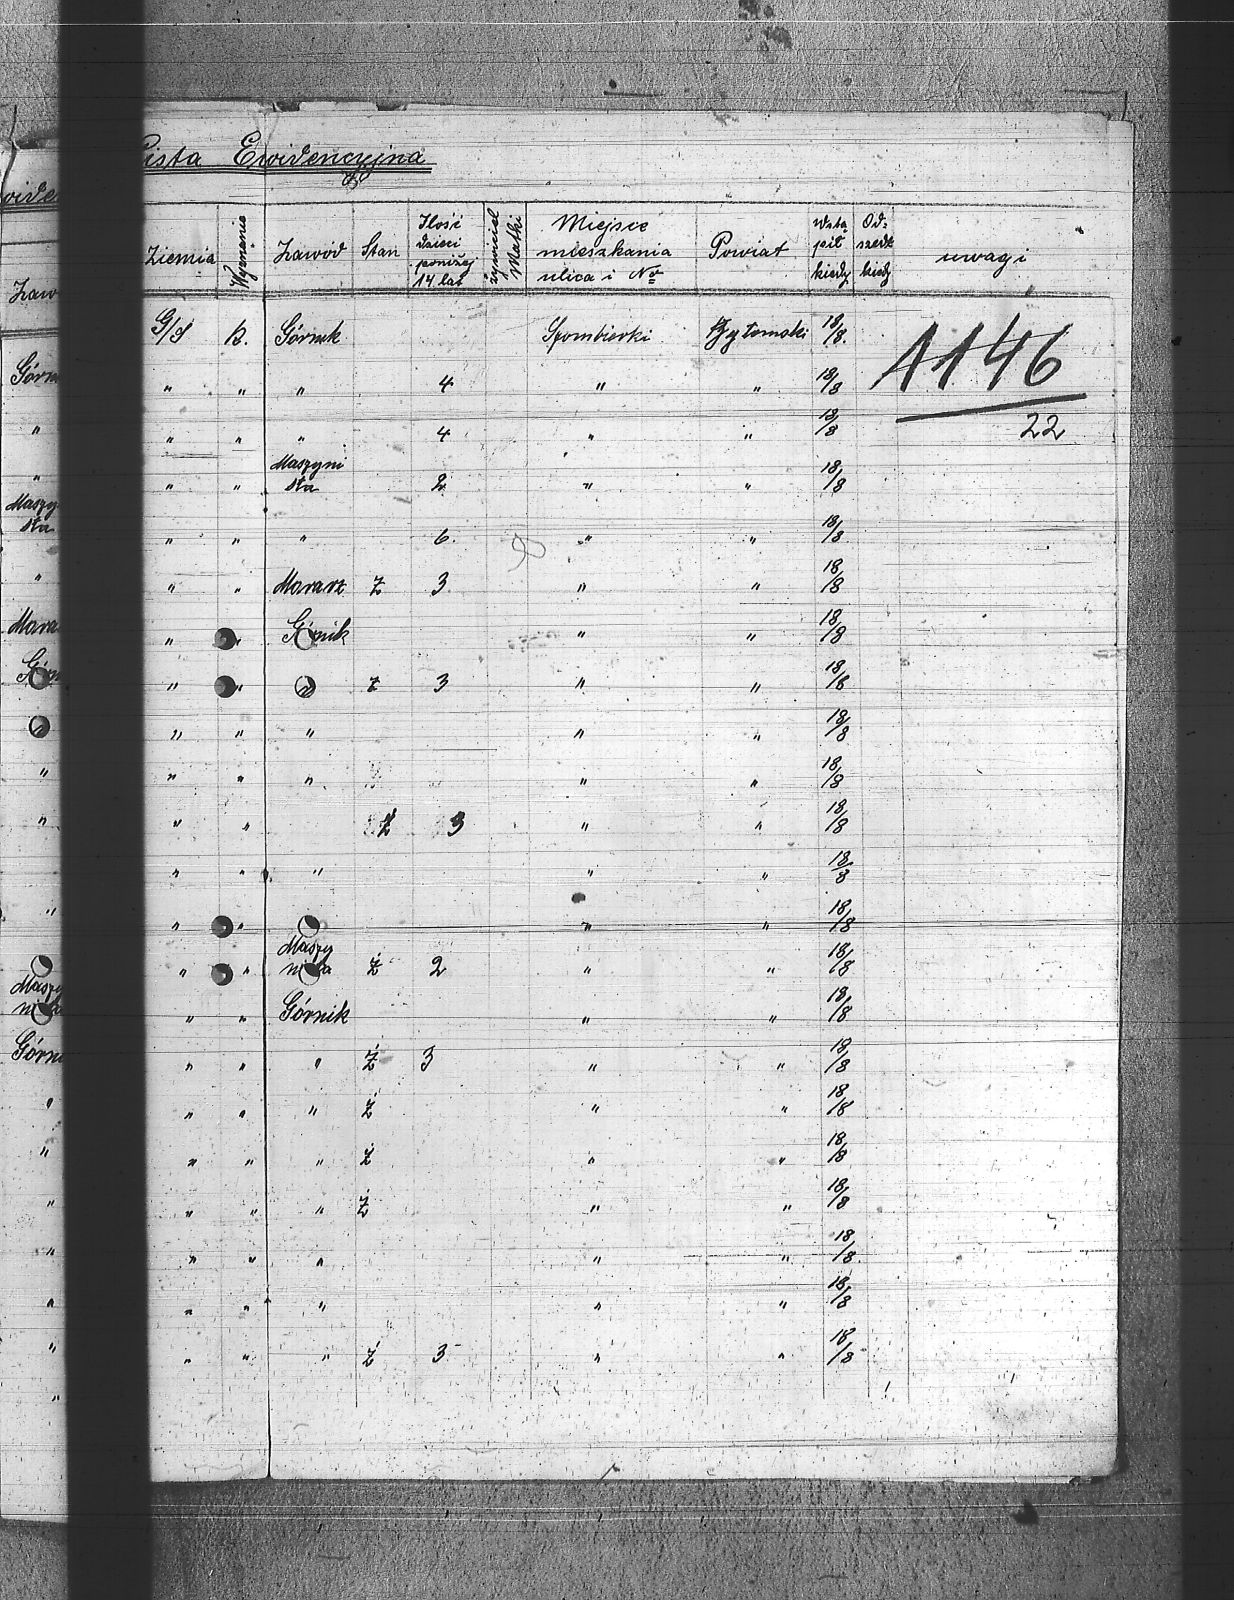 Lista Ewidencyjna
Ziemia Wyznanie Zawód Stan Ilość dzieci poniżej 14 lat żywiciel Matki Miejsce mieszkania ulica i No Powiat Wstąpił kiedy Odszedł kiedy uwagi
G/S k. Górnik Szombierki Bytomski 18/8. 1146
" " " 4 " " 18/8
22
" " " 4 " " 18/8
" " Maszynista 2 " " 18/8
" " " 6. " " 18/8
" " Murarz Ż 3 " " 18/8
" " Górnik " " 18/8
" " " Ż 3 " " 18/8
" " " " " 18/8
" " " " " 18/8
" " Ż 3 " " 18/8
" " " " " 18/8
" " " " 18/8
" " Maszynista Ż 2 " " 18/8
" " Górnik " " 18/8
" " " Ż 3 " " 18/8
" " " Ż " " 18/8
" " " Ż " " 18/8
" " " Ż " " 18/8
" " " " " 18/8
" " " " " 18/8
" " " Ż 3 " " 18/8